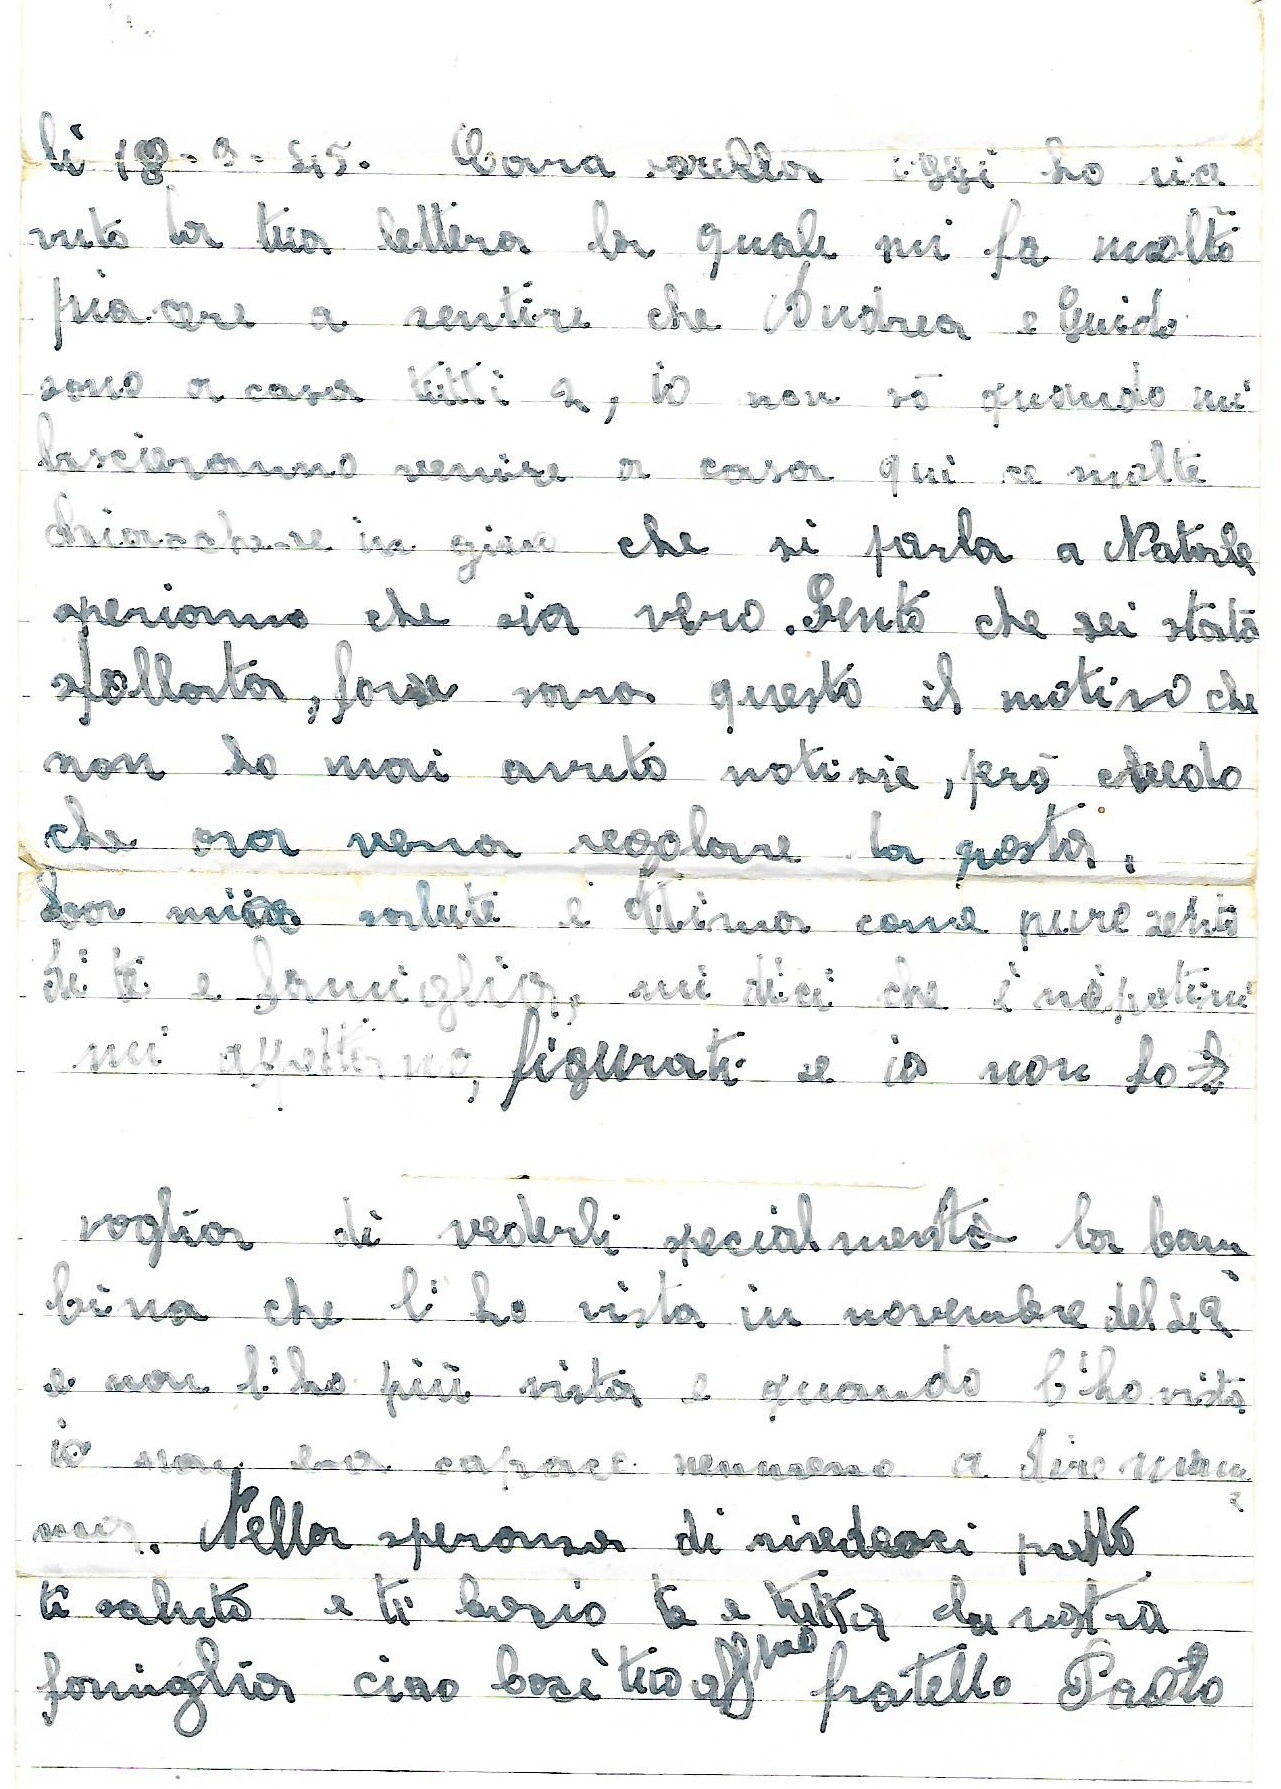 li 18-9-45. Cara sorella oggi ho rice
vuto la tua lettera la quale mi fa molto
piacere a sentire che Andrea e Guido
sono a casa tutti 2, io non sò quando mi
lascieranno venire a casa qui ce molte
chiacchere in giro che si parla a Natale
speriamo che sia vero. Sento che sei stata
sfollata, forse sara questo il motivo che
non ho mai avuto notisie, però chredo
che ora verra regolare la posta.
La mia salute è ttima come pure sento
di te e famiglia, mi dici che i nepotini
mi aspettano, figurati se io non ho
voglia di vederli specialmente la bam
bina che l'ho vista in novembre del 42
e non l'ho più vista e quando l'ho vista
io non era capace nemmeno a dire mam
ma. Nella speransa di rivederci presto
ti saluto e ti bacio te e tutta la vostra
famiglia ciao baci tuo aff mo fratello Paolo